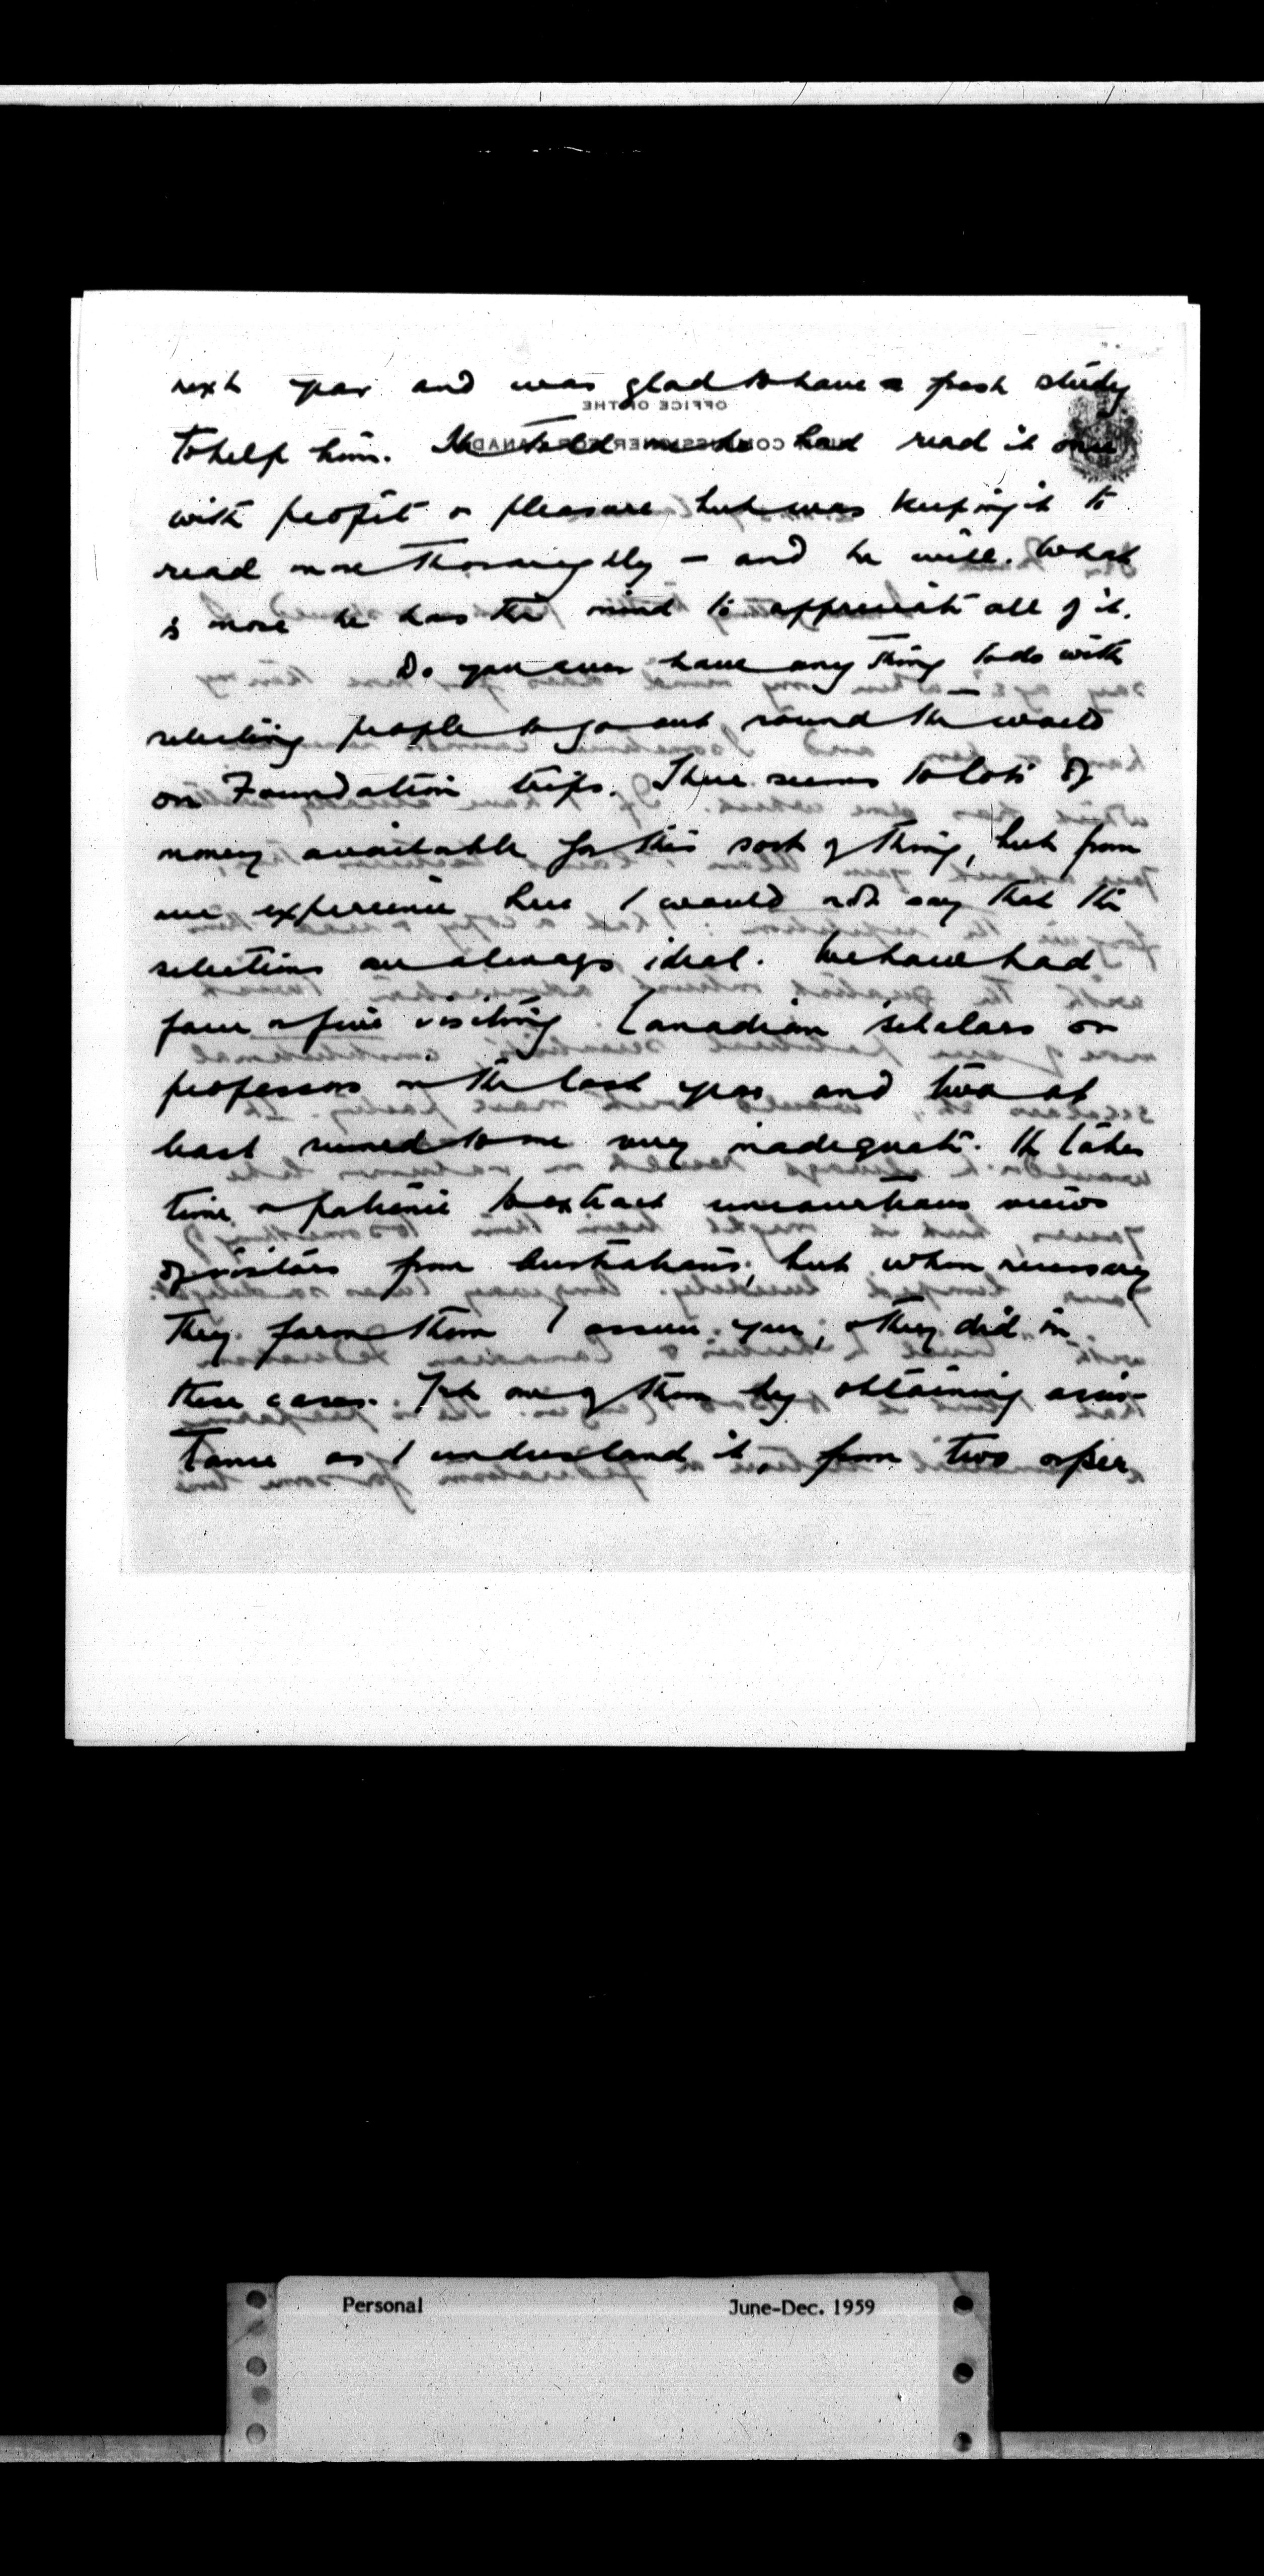 next year and was glad to have a fresh study
to help him. He told me he had read it once
with profit & pleasure but was keeping it to
read more thoroughly – and he will. What
is more he has the mind to appreciate all of it.
Do you ever have anything to do with
selecting people to go out round the world
on Foundation trips. There seems to lots of
money available for this sort of thing, but from
our experience here I would not say that the
selections are always ideal. We have had
four or five visiting Canadian scholars or
professors in the last year and two at
least seemed to me very inadequate. It takes
time & patience to extract uncourteous views
of visitors from Australians, but when necessary
they form them I assure you, & they did in
these cases. Yet one of them by obtaining assis-
tance as I understand it, from two or
OFFICE OF THE
COMMISSIONER FOR CANADA
Personal June-Dec. 1959